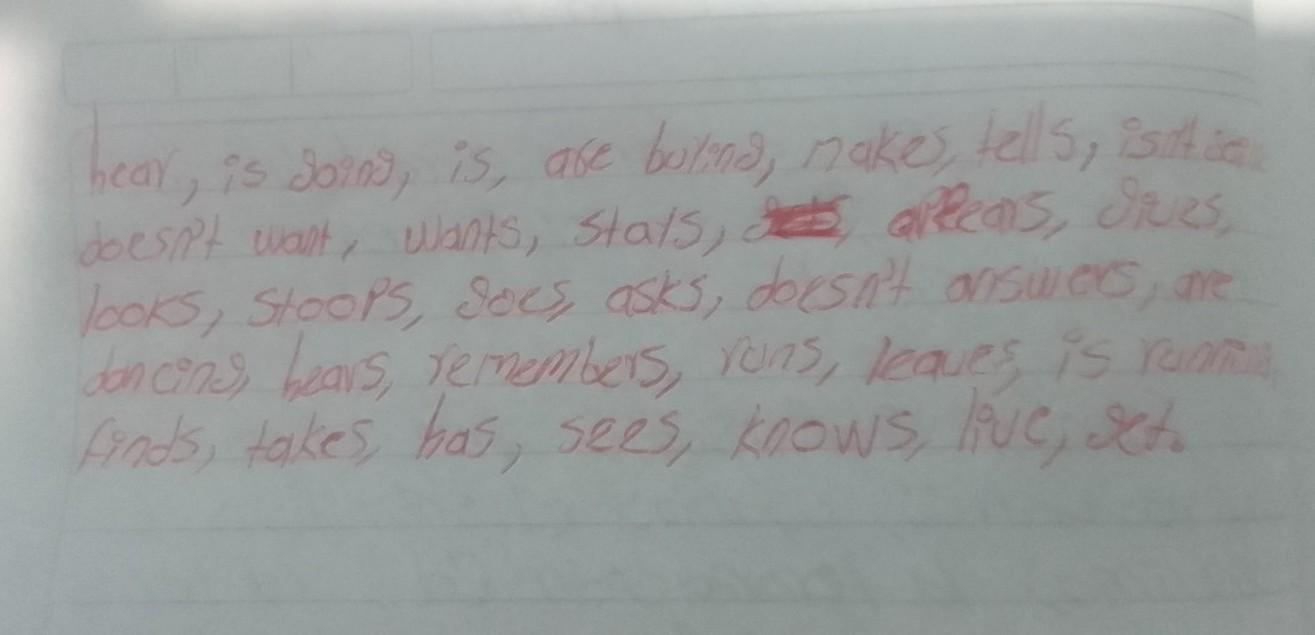 hear, is going, is, are boiling, makes, tells, isn't
doesn't want, wants, stars, appears, gives,
looks, stoops, goes, asks, doesn't answers, are
dancing, hears, remembers, runs, leaves, is
finds, takes, has, sees, knows, live, get.